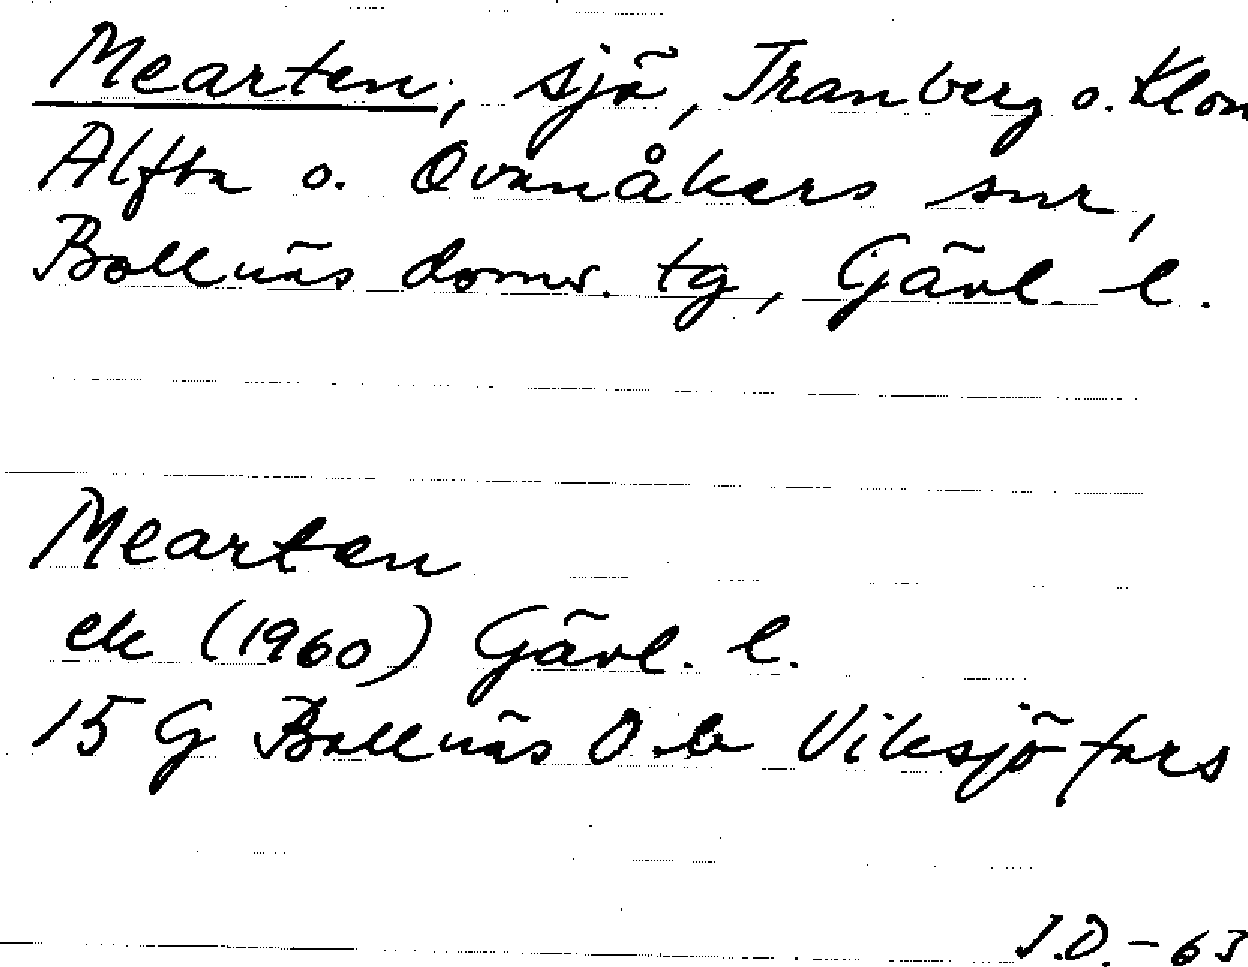 Mearten, sjö, Tranberg o. Klom
Alfta o. Ovanåkers snr,
Bollnäs doms. tg, Gävl. l.
Mearten
ek (1960) Gävl. l.
15 G Bollnäs O. bl. Viksjöfors
J.D. - 63